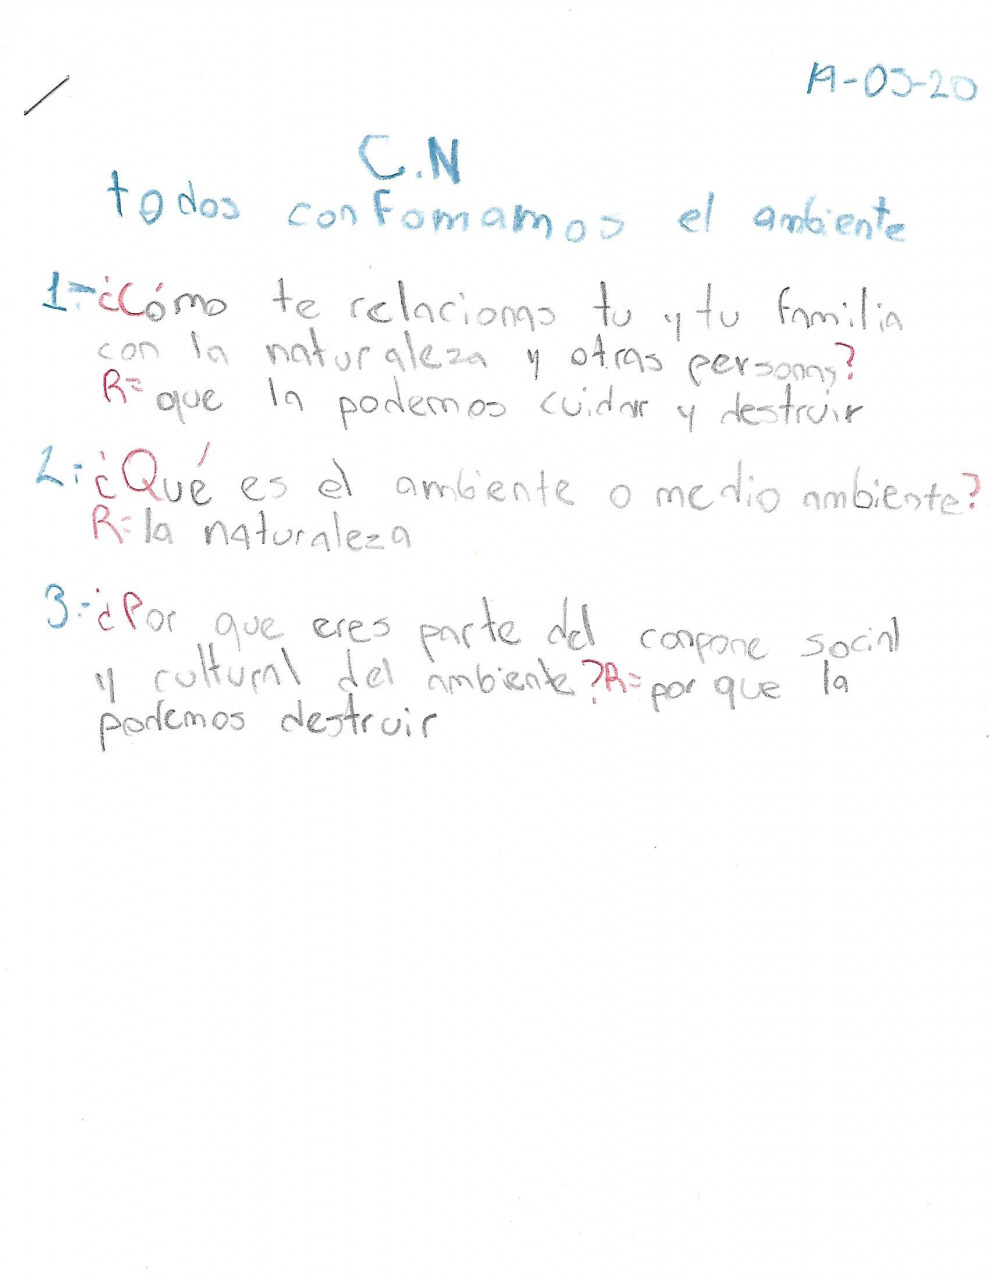 19-03-20
C.N
todos confomamos el ambiente
1.-¿Cómo te relacionas tu y tu familia
con la naturaleza y otras personas?
R= que la podemos cuidar y destruir
2.-¿Qué es el ambiente o medio ambiente?
R= la naturaleza
3.-¿Por que eres parte del conpone social
y cultural del ambiente?R= por que la
podemos destruir